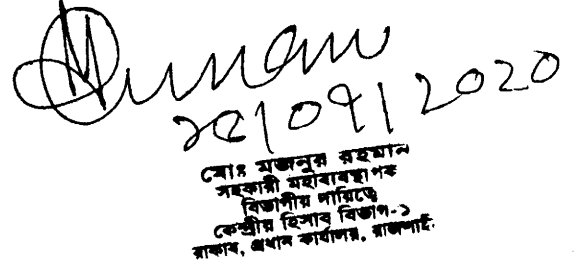 ২৫/০৭/2020
মোঃ মজনুর রহমান
সহকারী মহাব্যবস্থাপক
বিভাগীয় দায়িত্বে
কেন্দ্রীয় হিসাব বিভাগ-১
রাকাব, প্রধান কার্যালয়, রাজশাহী.